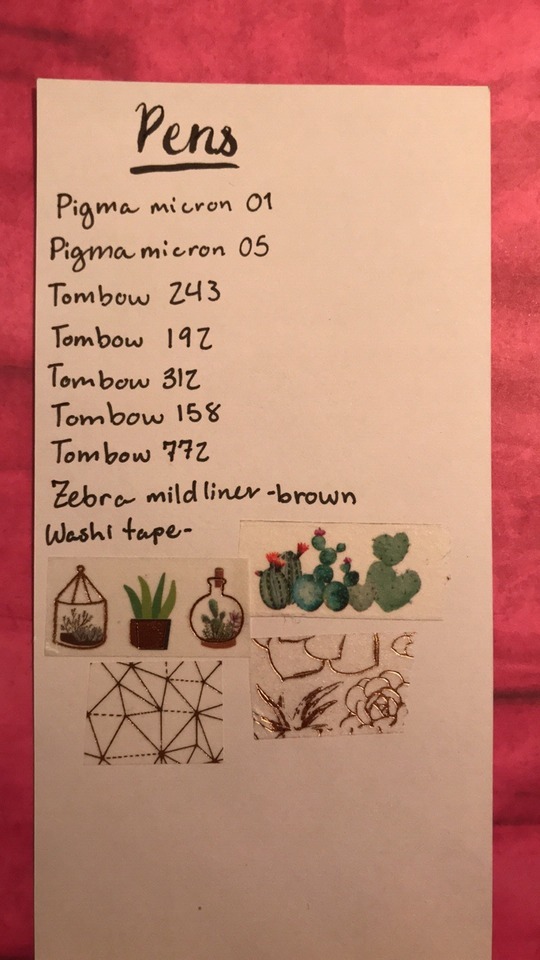 Pens
Pigma micron 01
Pigma micron 05
Tombow 243
Tombow 192
Tombow 312
Tombow 158
Tombow 772
Zebra mildliner -brown
Washi tape-